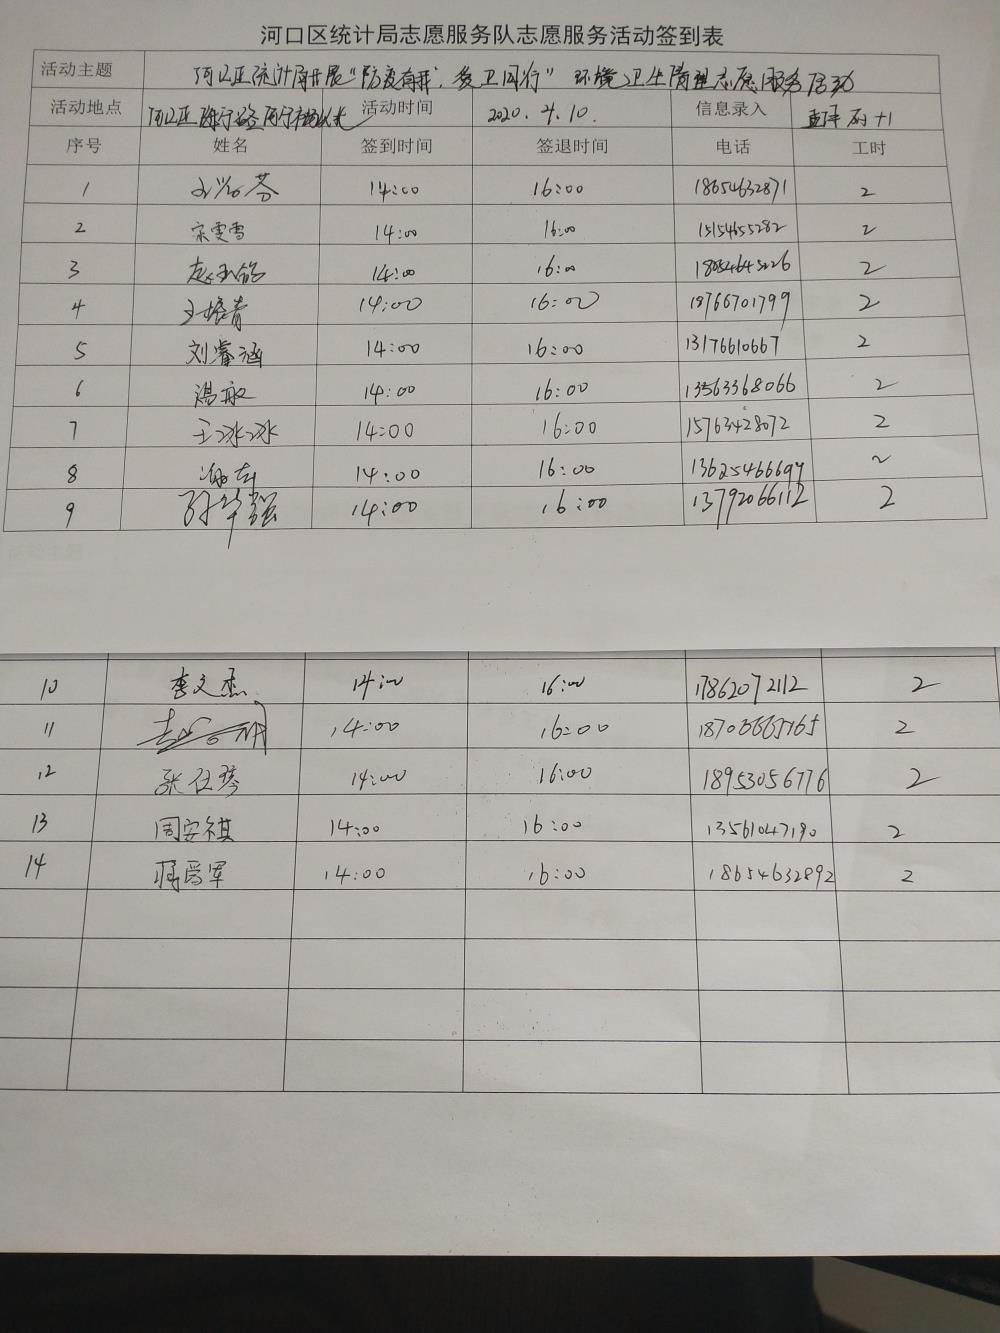 河口区统计局志愿服务队志愿服务活动签到表
活动主题 河口区统计局开展"防疫有我,爱卫同行"环境卫生清理志愿服务活动
活动地点 河口区 活动时间 2020.4.10. 信息录入
序号 姓名 签到时间 签退时间 电话 工时
1 14:00 16:00 18654632871 2
2 宋雯雪 14:00 16:00 15154655282 2
3 14:00 16:00 2
4 王培青 14:00 16:00 18766701799 2
5 刘睿涵 14:00 16:00 13176610667 2
6 汤敏 14:00 16:00 13563368066 2
7 王冰冰 14:00 16:00 15763428072 2
8 14:00 16:00 2
9 孙华强 14:00 16:00 13792066112 2
10 李文杰 14:00 16:00 17862072112 2
11 14:00 16:00 2
12 张仕琴 14:00 16:00 18953056776 2
13 周安祺 14:00 16:00 13561047190 2
14 14:00 16:00 18654632892 2